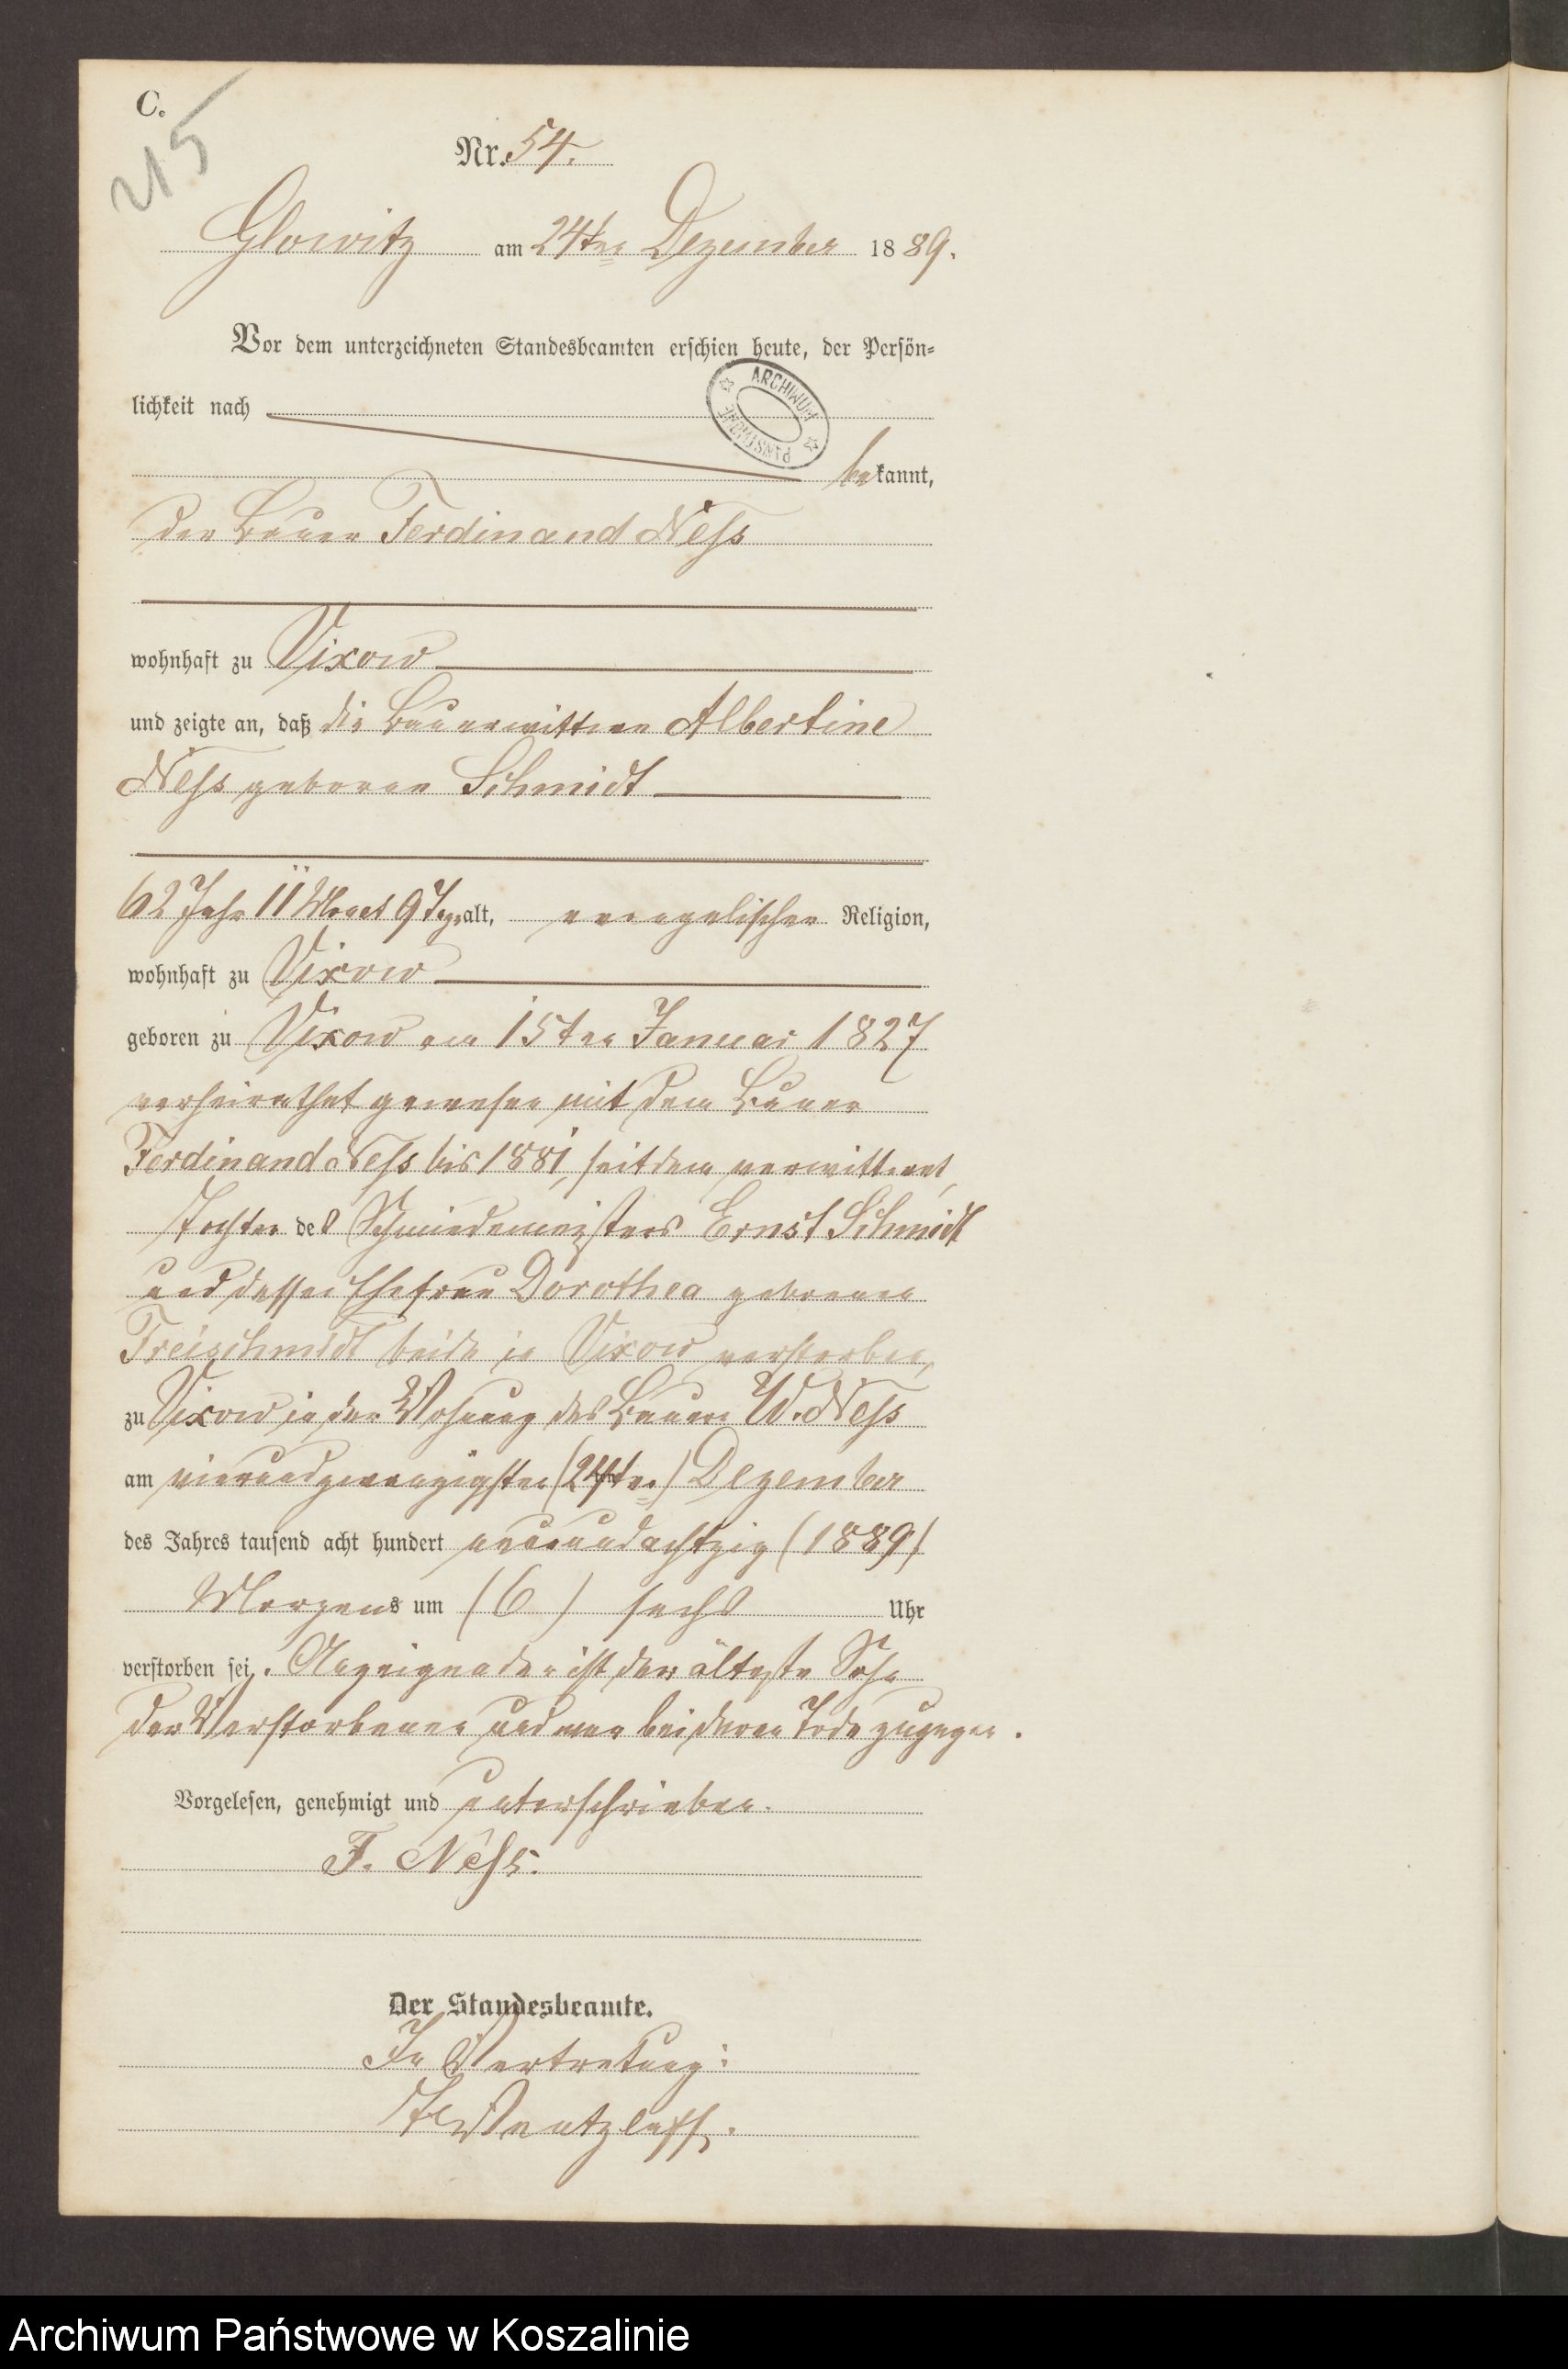 C.
215
Nr. 54.
Glowitz am 24ten Dezember 1889.
Vor dem unterzeichneten Standesbeamten erschien heute, der Persön-
lichkeit nach
ARCHIWUM PAŃSTWOWE
bekannt,
der Bauer Ferdinand Neſs
wohnhaft zu Vixow
und zeigte an, daß die Bauerwittwe Albertine
Neſs geborene Schmidt
62 Jahr 11 Monat 9 Tage alt, evangelischer Religion,
wohnhaft zu Vixow
geboren zu Vixow am 15ten Januar 1827
verheirathet gewesen mit dem Bauer
Ferdinand Neſs bis 1881, seitdem verwittwet,
Tochter des Schmiedemeisters Ernst Schmidt
und dessen Ehefrau Dorothea geborenen
Freischmidt beide in Vixow verstorben,
zu Vixow in der Wohnung des Bauern W. Neſs
am vierundzwanzigsten (24ten) Dezember
des Jahres tausend acht hundert neunundachtzig (1889)
Morgens um (6) sechs Uhr
verstorben sei. Anzeigender ist der älteste Sohn
der Verstorbenen und war bei deren Tode zugegen.
Vorgelesen, genehmigt und unterschrieben.
F. Neſs.
Der Standesbeamte.
In Vertretung:
Wentzlaff.
Archiwum Państwowe w Koszalinie